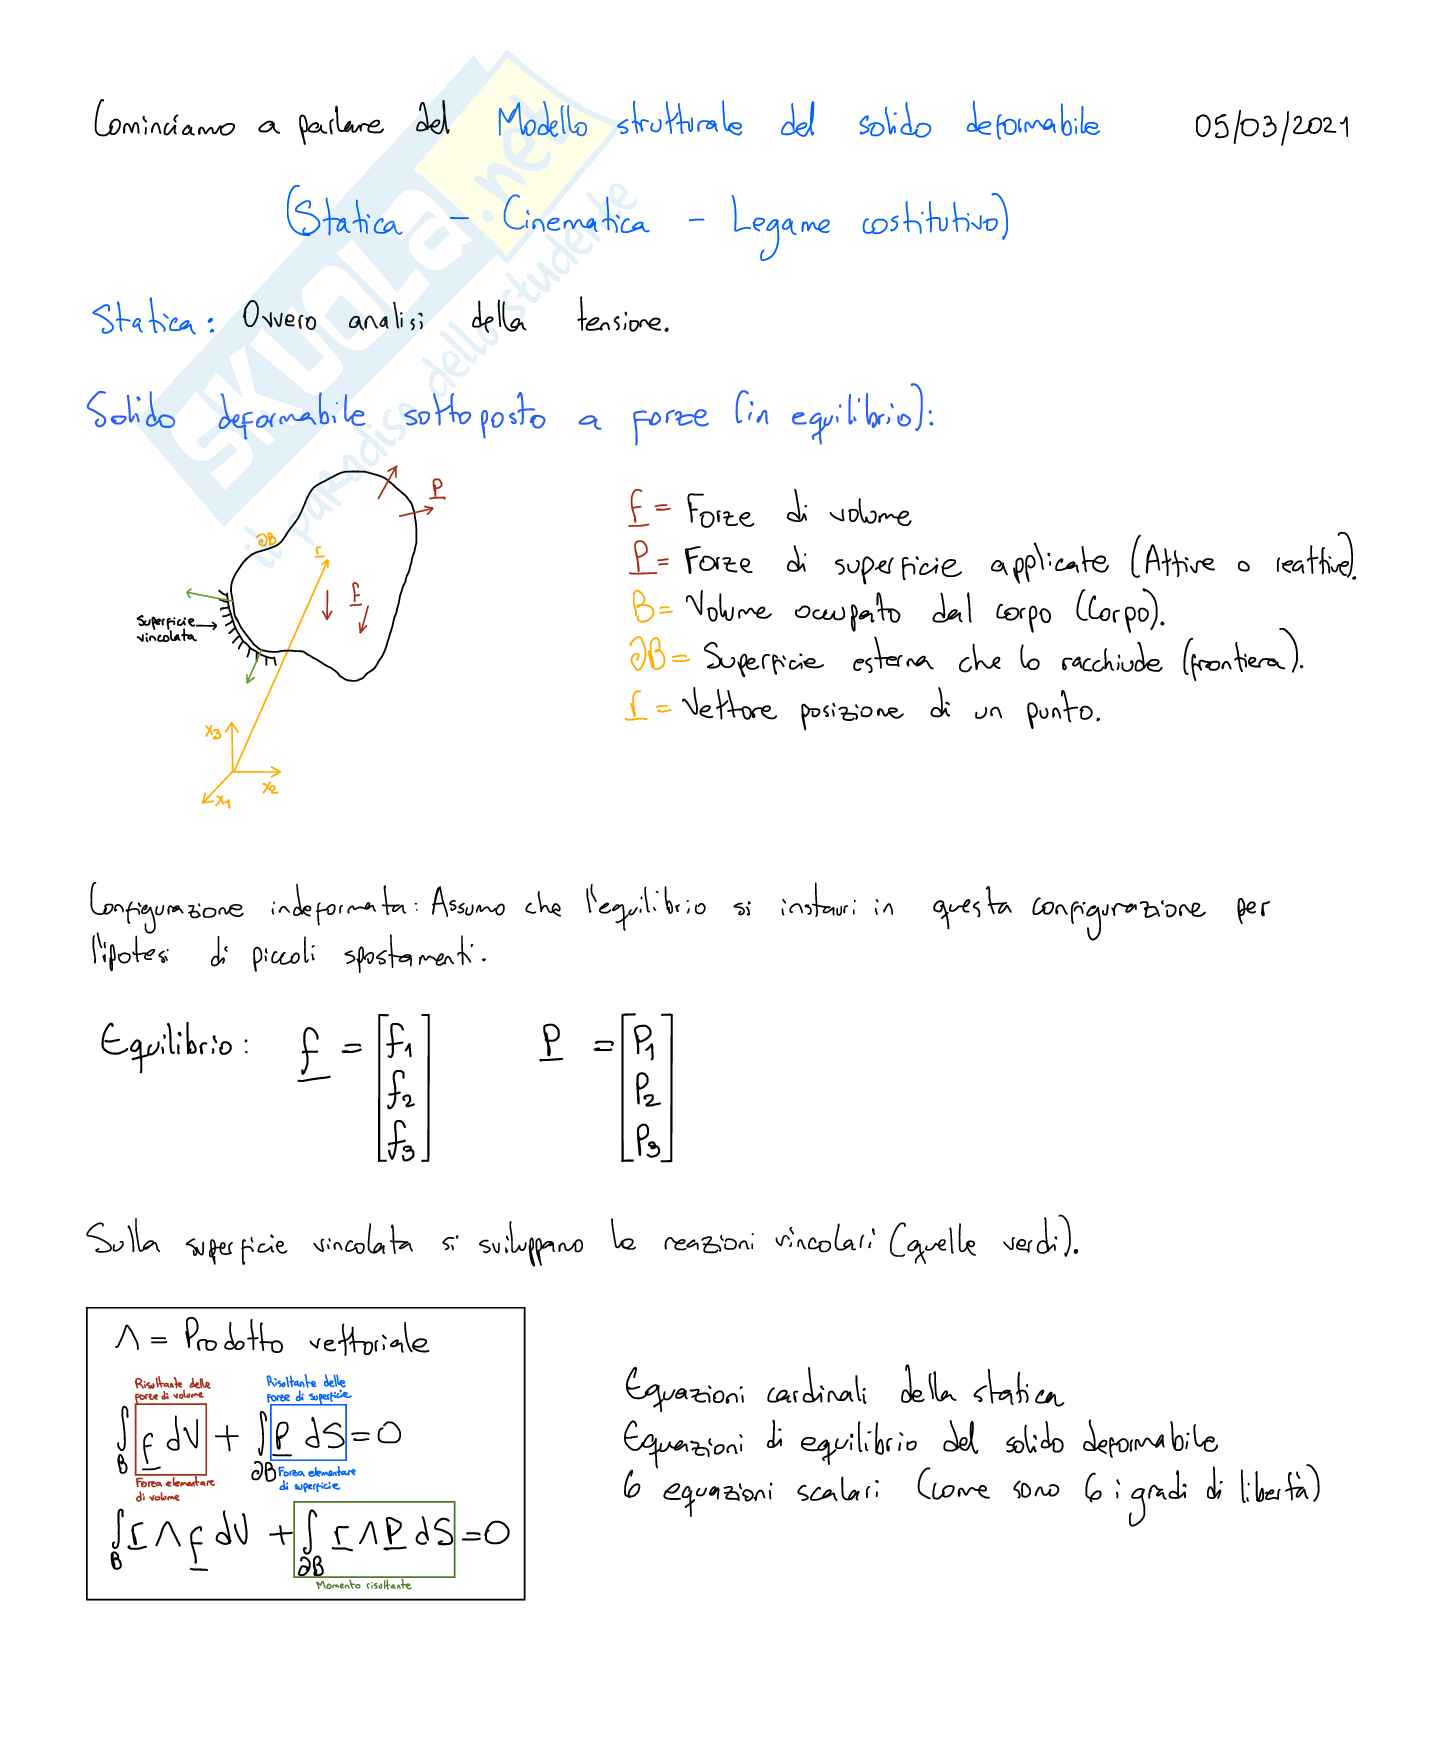 Cominciamo a parlare del Modello strutturale del solido deformabile 05/03/2021
(Statica - Cinematica - Legame costitutivo)
Statica: Ovvero analisi della tensione.
Solido deformabile sottoposto a forze (in equilibrio):
P
∂B
r
f
Superficie
vincolata
x3
x2
x1
f = Forze di volume
P = Forze di superficie applicate (Attive o reattive).
B = Volume occupato dal corpo (Corpo).
∂B = Superficie esterna che lo racchiude (frontiera).
r = Vettore posizione di un punto.
Configurazione indeformata: Assumo che l'equilibrio si instauri in questa configurazione per
l'ipotesi di piccoli spostamenti.
Equilibrio: f = [f1 f2 f3] P = [P1 P2 P3]
Sulla superficie vincolata si sviluppano le reazioni vincolari (quelle verdi).
Λ = Prodotto vettoriale
Risultante delle
forze di volume
Risultante delle
forze di superficie
∫B f dV + ∫∂B P dS = 0
Forza elementare
di volume
Forza elementare
di superficie
∫B r Λ f dV + ∫∂B r Λ P dS = 0
Momento risultante
Equazioni cardinali della statica
Equazioni di equilibrio del solido deformabile
6 equazioni scalari (come sono 6 i gradi di libertà)
SKUOLA.net
il paradiso dello studente